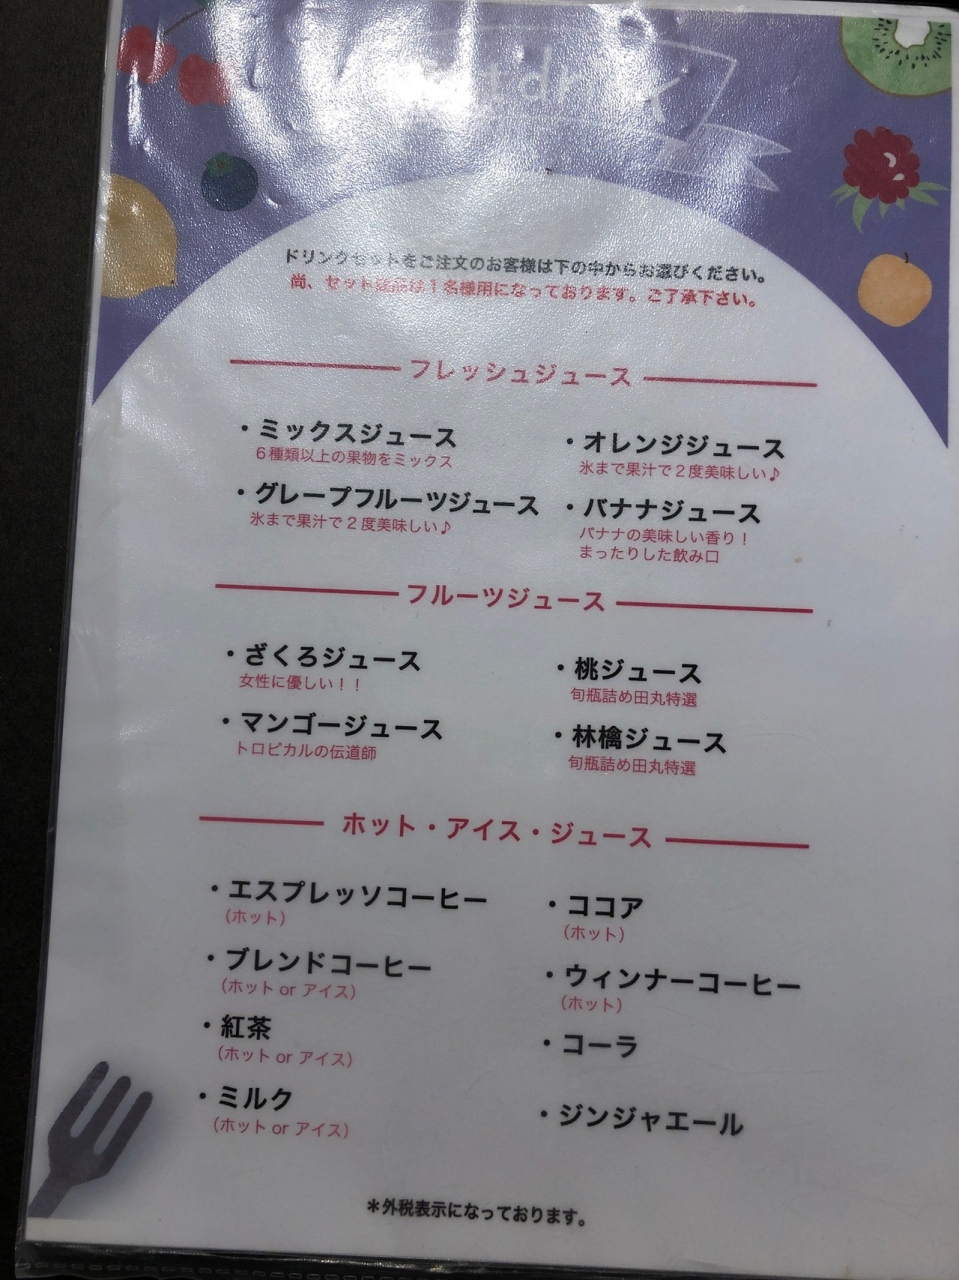 ドリンクセットをご注文のお客様は下の中からお選びください。
尚、セット は1名様用になっております。ご了承下さい。
フレッシュジュース
・ミックスジュース
6種類以上の果物をミックス
・オレンジジュース
氷まで果汁で2度美味しい♪
・グレープフルーツジュース
氷まで果汁で2度美味しい♪
・バナナジュース
バナナの美味しい香り!
まったりした飲み口
フルーツジュース
・ざくろジュース
女性に優しい!!
・桃ジュース
旬瓶詰め田丸特選
・マンゴージュース
トロピカルの伝道師
・林檎ジュース
旬瓶詰め田丸特選
ホット・アイス・ジュース
・エスプレッソコーヒー
(ホット)
・ココア
(ホット)
・ブレンドコーヒー
(ホット or アイス)
・ウィンナーコーヒー
(ホット)
・紅茶
(ホット or アイス)
・コーラ
・ミルク
(ホット or アイス)
・ジンジャエール
*外税表示になっております。